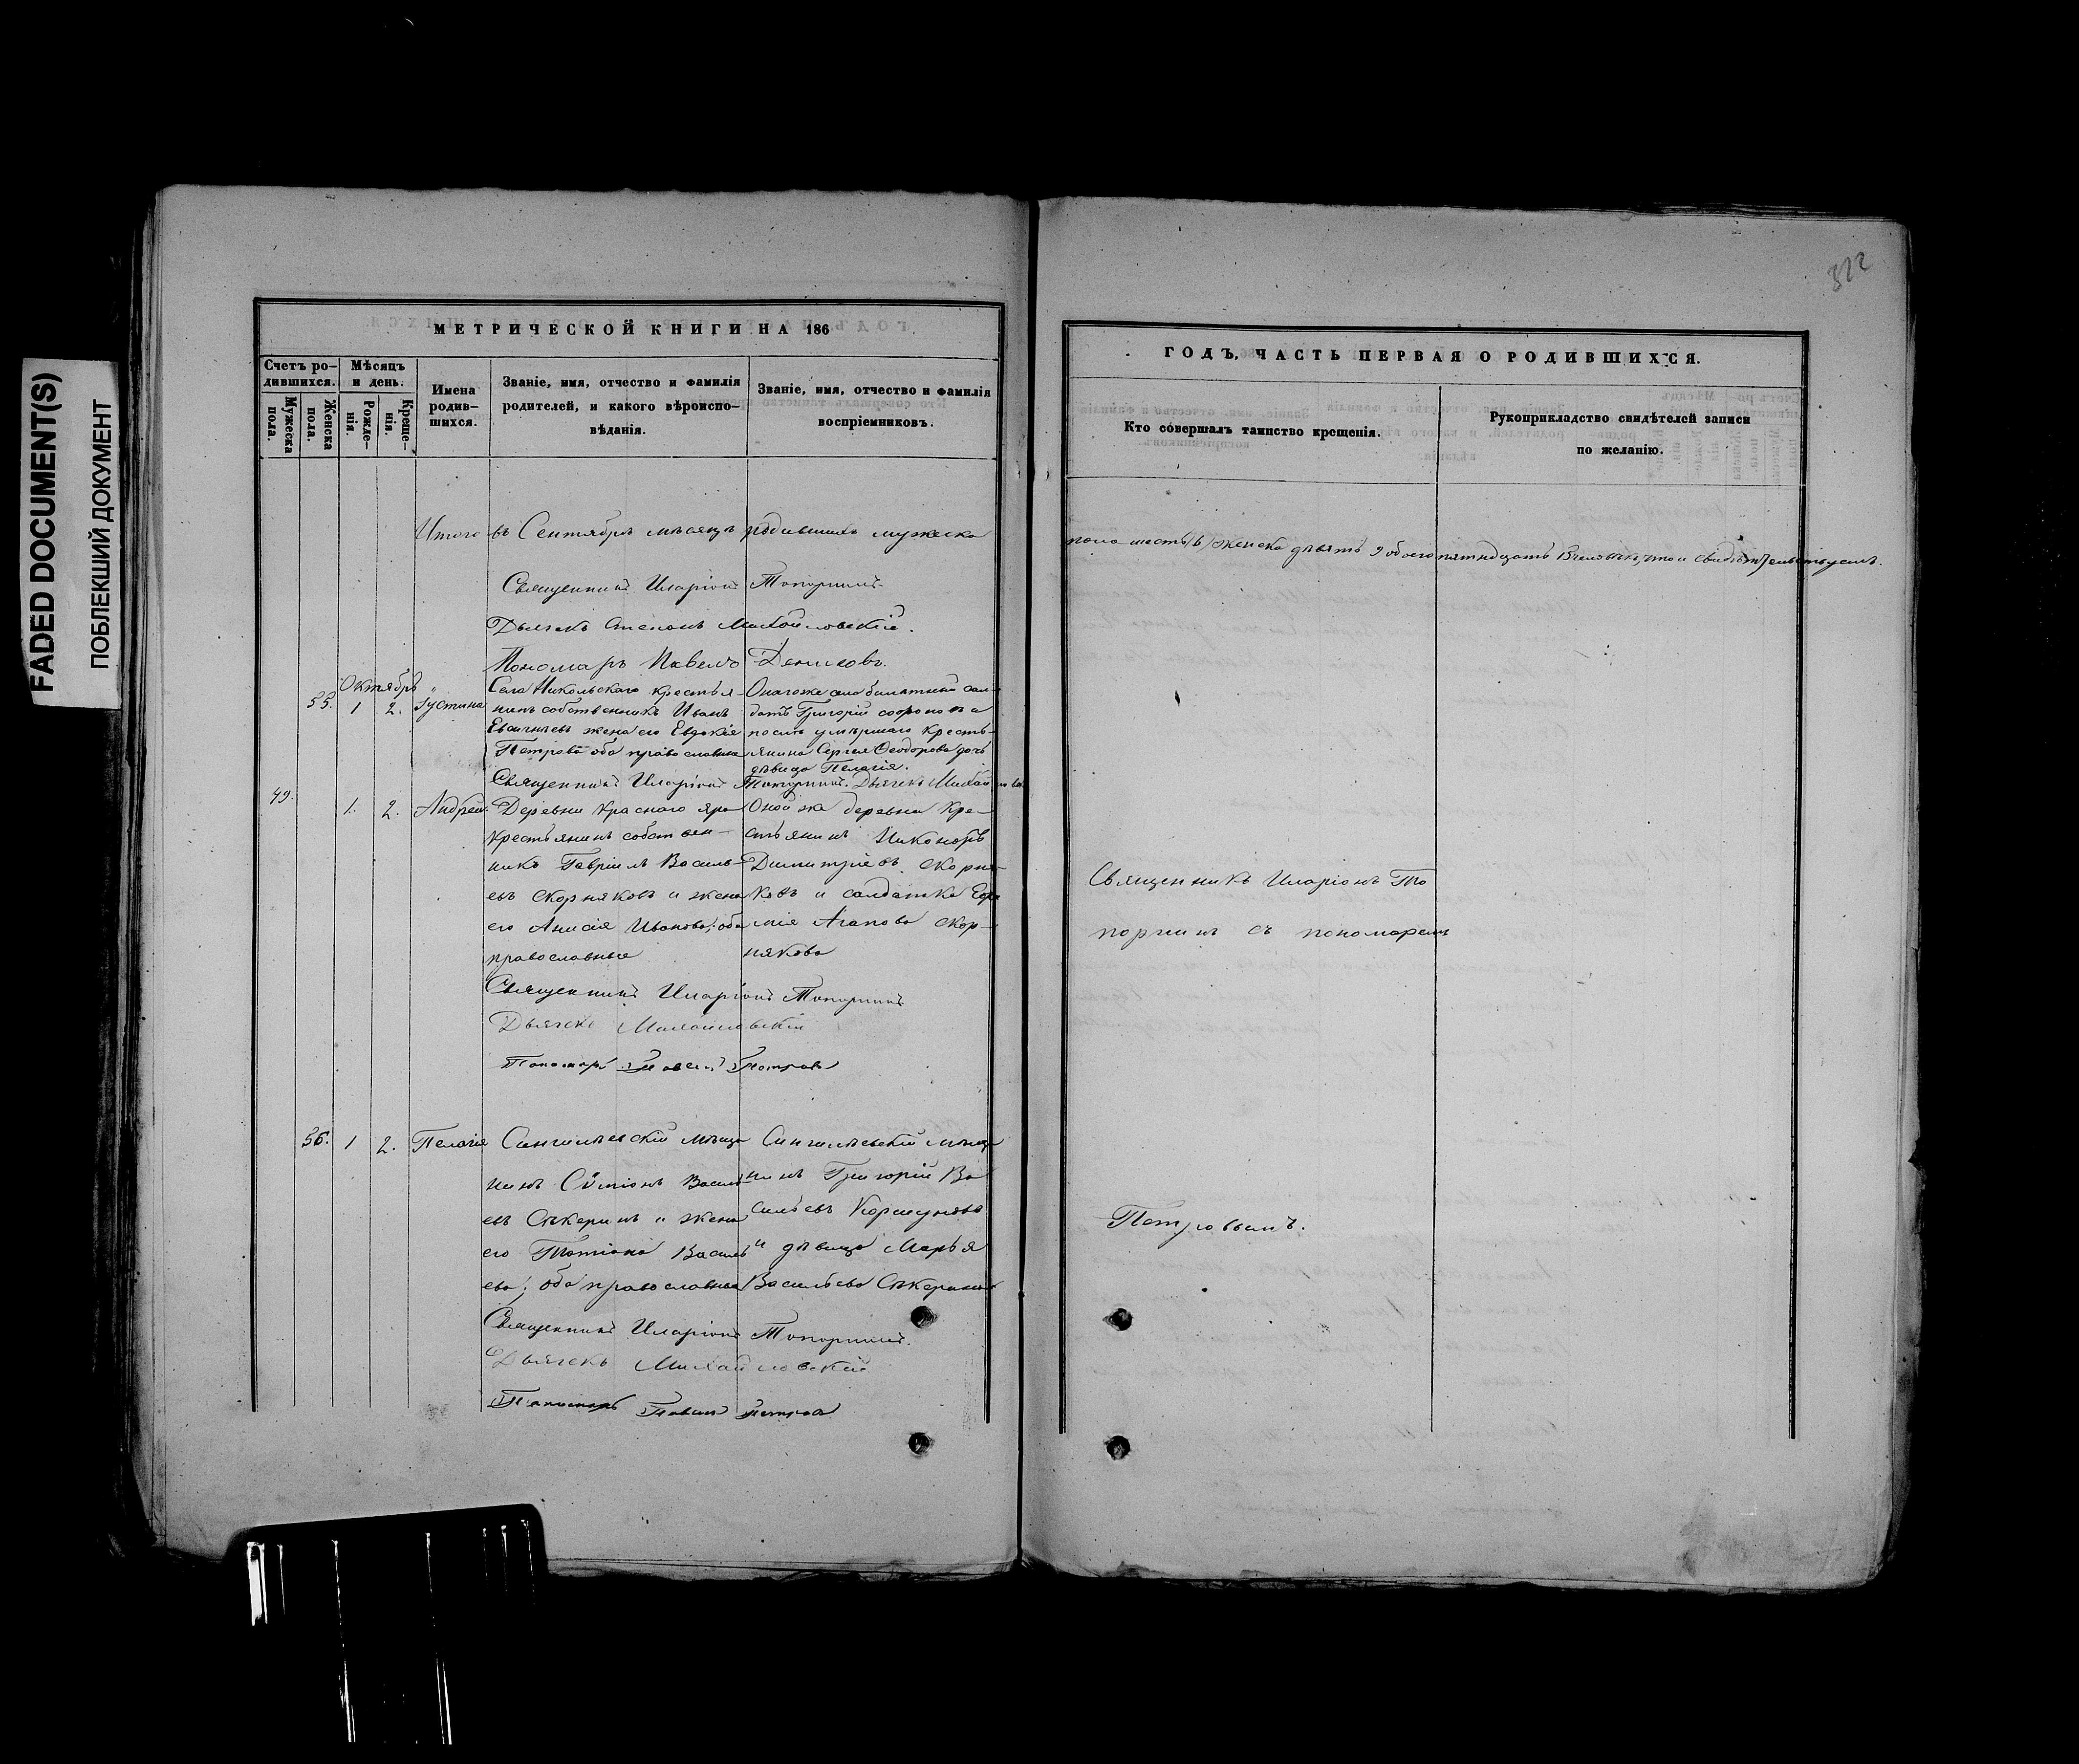 FADED DOCUMENT(S)
ПОБЛЕКШИЙ ДОКУМЕНТ
312
МЕТРИЧЕСКОЙ КНИГИ НА 186
Счетъ ро-
дившихся.
Мужеска
пола.
Женска
пола.
Мѣсяцъ
и день.
Рожде-
нія.
Креще-
нія.
Имена
родив-
шихся.
Званіе, имя, отчество и фамилія
родителей, и какого вѣроиспо-
вѣданія.
Званіе, имя, отчество и фамилія
воспріемниковъ.
Итого въ Сентябрѣ мѣсяцѣ родившихъ мужеска
Священникъ Иларіонъ Топорнинъ
Дьячекъ Степанъ Михайловскій.
Пономарь Павелъ
Октябрь
55. 1 2. Густина
Села Никольскаго крестья-
нинъ собственникъ Иванъ
жена его Евдокія
Петрова оба православные
Онагоже села билетный сол-
датъ Григорій
послѣ умершаго кресть-
янина Сергея Феодорова дочь
дѣвица Пелагія.
Священникъ Иларіонъ Топорнинъ. Дьячекъ
49. 1. 2. Андрей.
Деревни Краснаго яра
крестьянинъ собствен-
никъ Гавріилъ Василь-
евъ Скорняковъ и жена
его Анисія Иванова; оба
православные
Оной же деревни кре-
стьянинъ Никоноръ
Димитріевъ Скорня-
ковъ и солдатка
Агапова Скор-
някова
Священникъ Иларіонъ Топорнинъ
Дьячекъ Михайловскій
Пономарь Павелъ Петровъ
56. 1 2. Пелагія
Сингилѣевскій мѣща
нинъ Сѵміонъ Василь
евъ Сѣкеринъ и жена
его Татіана Василь
ева; оба православные
Сингилѣевскій мѣща
нинъ Григорій Ва
сильевъ
и дѣвица Марья
Васильева Сѣкерина
Священникъ Иларіонъ Топорнинъ.
Дьячекъ Михайловскій
Пономарь Павелъ Петровъ
ГОДЪ, ЧАСТЬ ПЕРВАЯ О РОДИВШИХСЯ.
Кто совершалъ таинство крещенія.
Рукоприкладство свидѣтелей записи
по желанію.
пола шесть женска девять 9 обоего пятнадцать что и свидѣтельствуемъ.
Священникъ Иларіонъ То
порнинъ съ пономаремъ
Петровымъ.